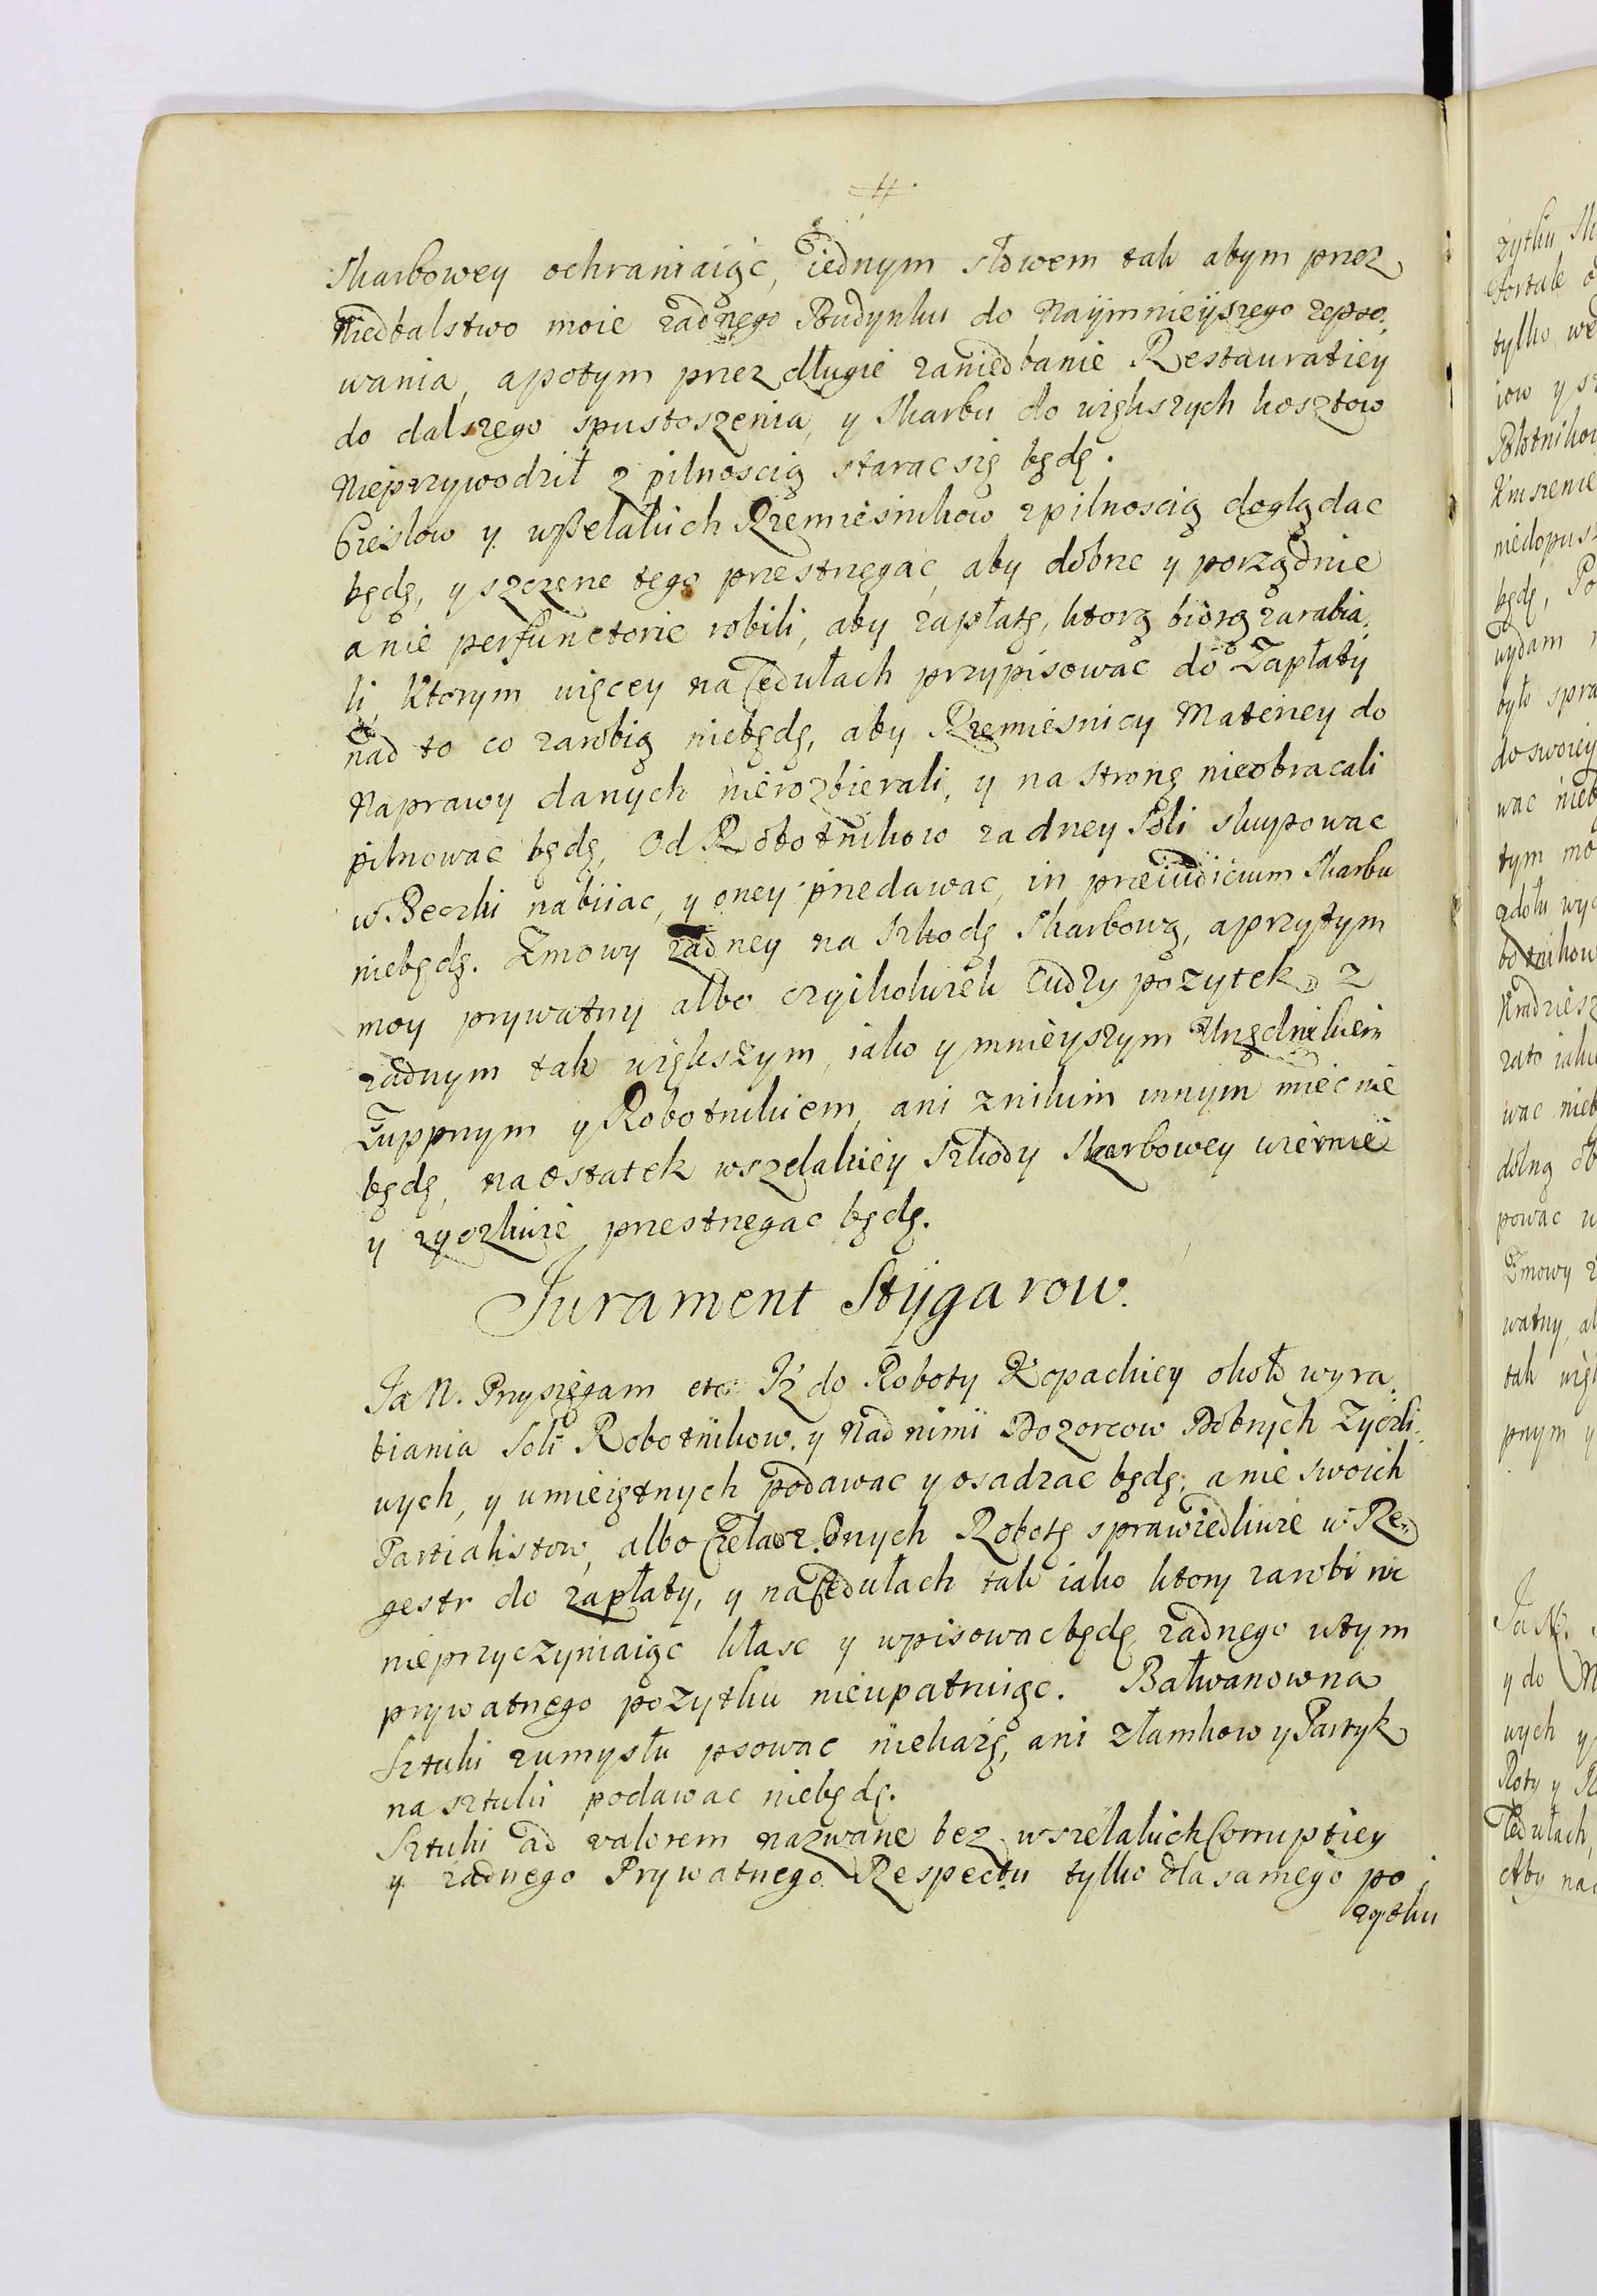 Skarbowey ochraniaiąc, iednym słowem tak abym przez
Niedbalstwo moie zadnego Budynku do Naymnieyszego zepso,
wania, apotym przez długie zaniedbanie Restauratiey
do dalszego spustoszenia, y Skarbu do większych kosztow
Nieprzywodził z pilnoscią staracsię będę.
Cieslow y wszelakich Rzemiesnikow zpilnoscią doglądac
będę, y szczerze tego przestrzegac, aby dobrze y porządnie
a nie perfunctorie robili, aby zapłatę, ktorą biorą zarabia,
li, Ktorym więcey na Cedułach przypisowac do Zapłaty
nad to co zarobią niebędę, aby Rzemiesnicy Materiey do
Naprawy danych nierozbierali, y na stronę nieobracali
pilnowac będę, Od Robotnikow zadney Soli skupowac
w Beczki nabiiac, y oney przedawac, in preiudicium Skarbu
niebędę. Zmowy zadney na Szkodę Skarbową, aprzytym
moy prywatny albo czyikolwiek Cudzy pozytek z
zadnym tak większym, iako y mnieyszym Urzędnikiem
Zuppnym y Robotnikiem, ani znikim innym miec nie
będę, na ostatek wszelakiey Szkody Skarbowey wiernie
y zyczliwie przestrzegac będę.
Jurament Stygarow.
Ja N. Przysięgam etc: Iz do Roboty Kopackiey około wyra,
biania Soli Robotnikow. y Nad nimi Dozorcow Dobrych Zyczli,
wych, y umieiętnych podawac y osadzac będę; a nie swoich
Partialistow, albo Robotę sprawiedliwie w Re,
gestr do zapłaty, y na Cedułach tak iako ktory zarobi nic
nieprzyczyniaiąc kłasc y wpisowac będę zadnego wtym
prywatnego pozytku nieupatruiąc. Bałwanow na
Sztuki zumysłu psowac niekażę, ani złamkow y Partyk
na sztuki podawac niebędę.
Sztuki ad valorem nazwane bez wszelakich Corruptiey
y zadnego Prywatnego Respectu tylko dla samego po,
zytku